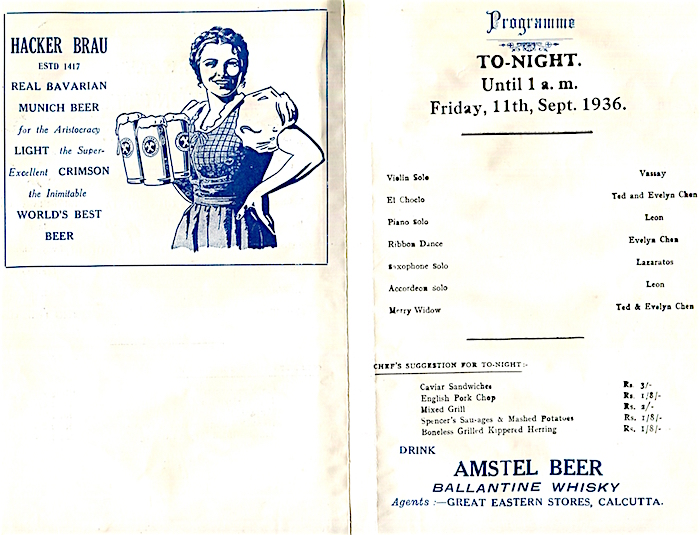 HACKER BRAU
ESTD 1417
REAL BAVARIAN
MUNICH BEER
for the Aristocracy
LIGHT the Super-
Excellent CRIMSON
the Inimitable
WORLD'S BEST
BEER
Programme
TO-NIGHT.
Until 1 a. m.
Friday, 11th, Sept. 1936.
Violin Solo Vassay
El Choclo Ted and Evelyn Chen
Piano Solo Leon
Ribbon Dance Evelyn Chen
Saxophone Solo Lazaratos
Accordeon Solo Leon
Merry Widow Ted & Evelyn Chen
CHEF'S SUGGESTION FOR TO-NIGHT:-
Caviar Sandwiches Rs. 3/-
English Pork Chop Rs. 1/8/-
Mixed Grill Rs. 2/-
Spencer's Sausages & Mashed Potatoes Rs. 1/8/-
Boneless Grilled Kippered Herring Rs. 1/8/-
DRINK
AMSTEL BEER
BALLANTINE WHISKY
Agents :—GREAT EASTERN STORES, CALCUTTA.